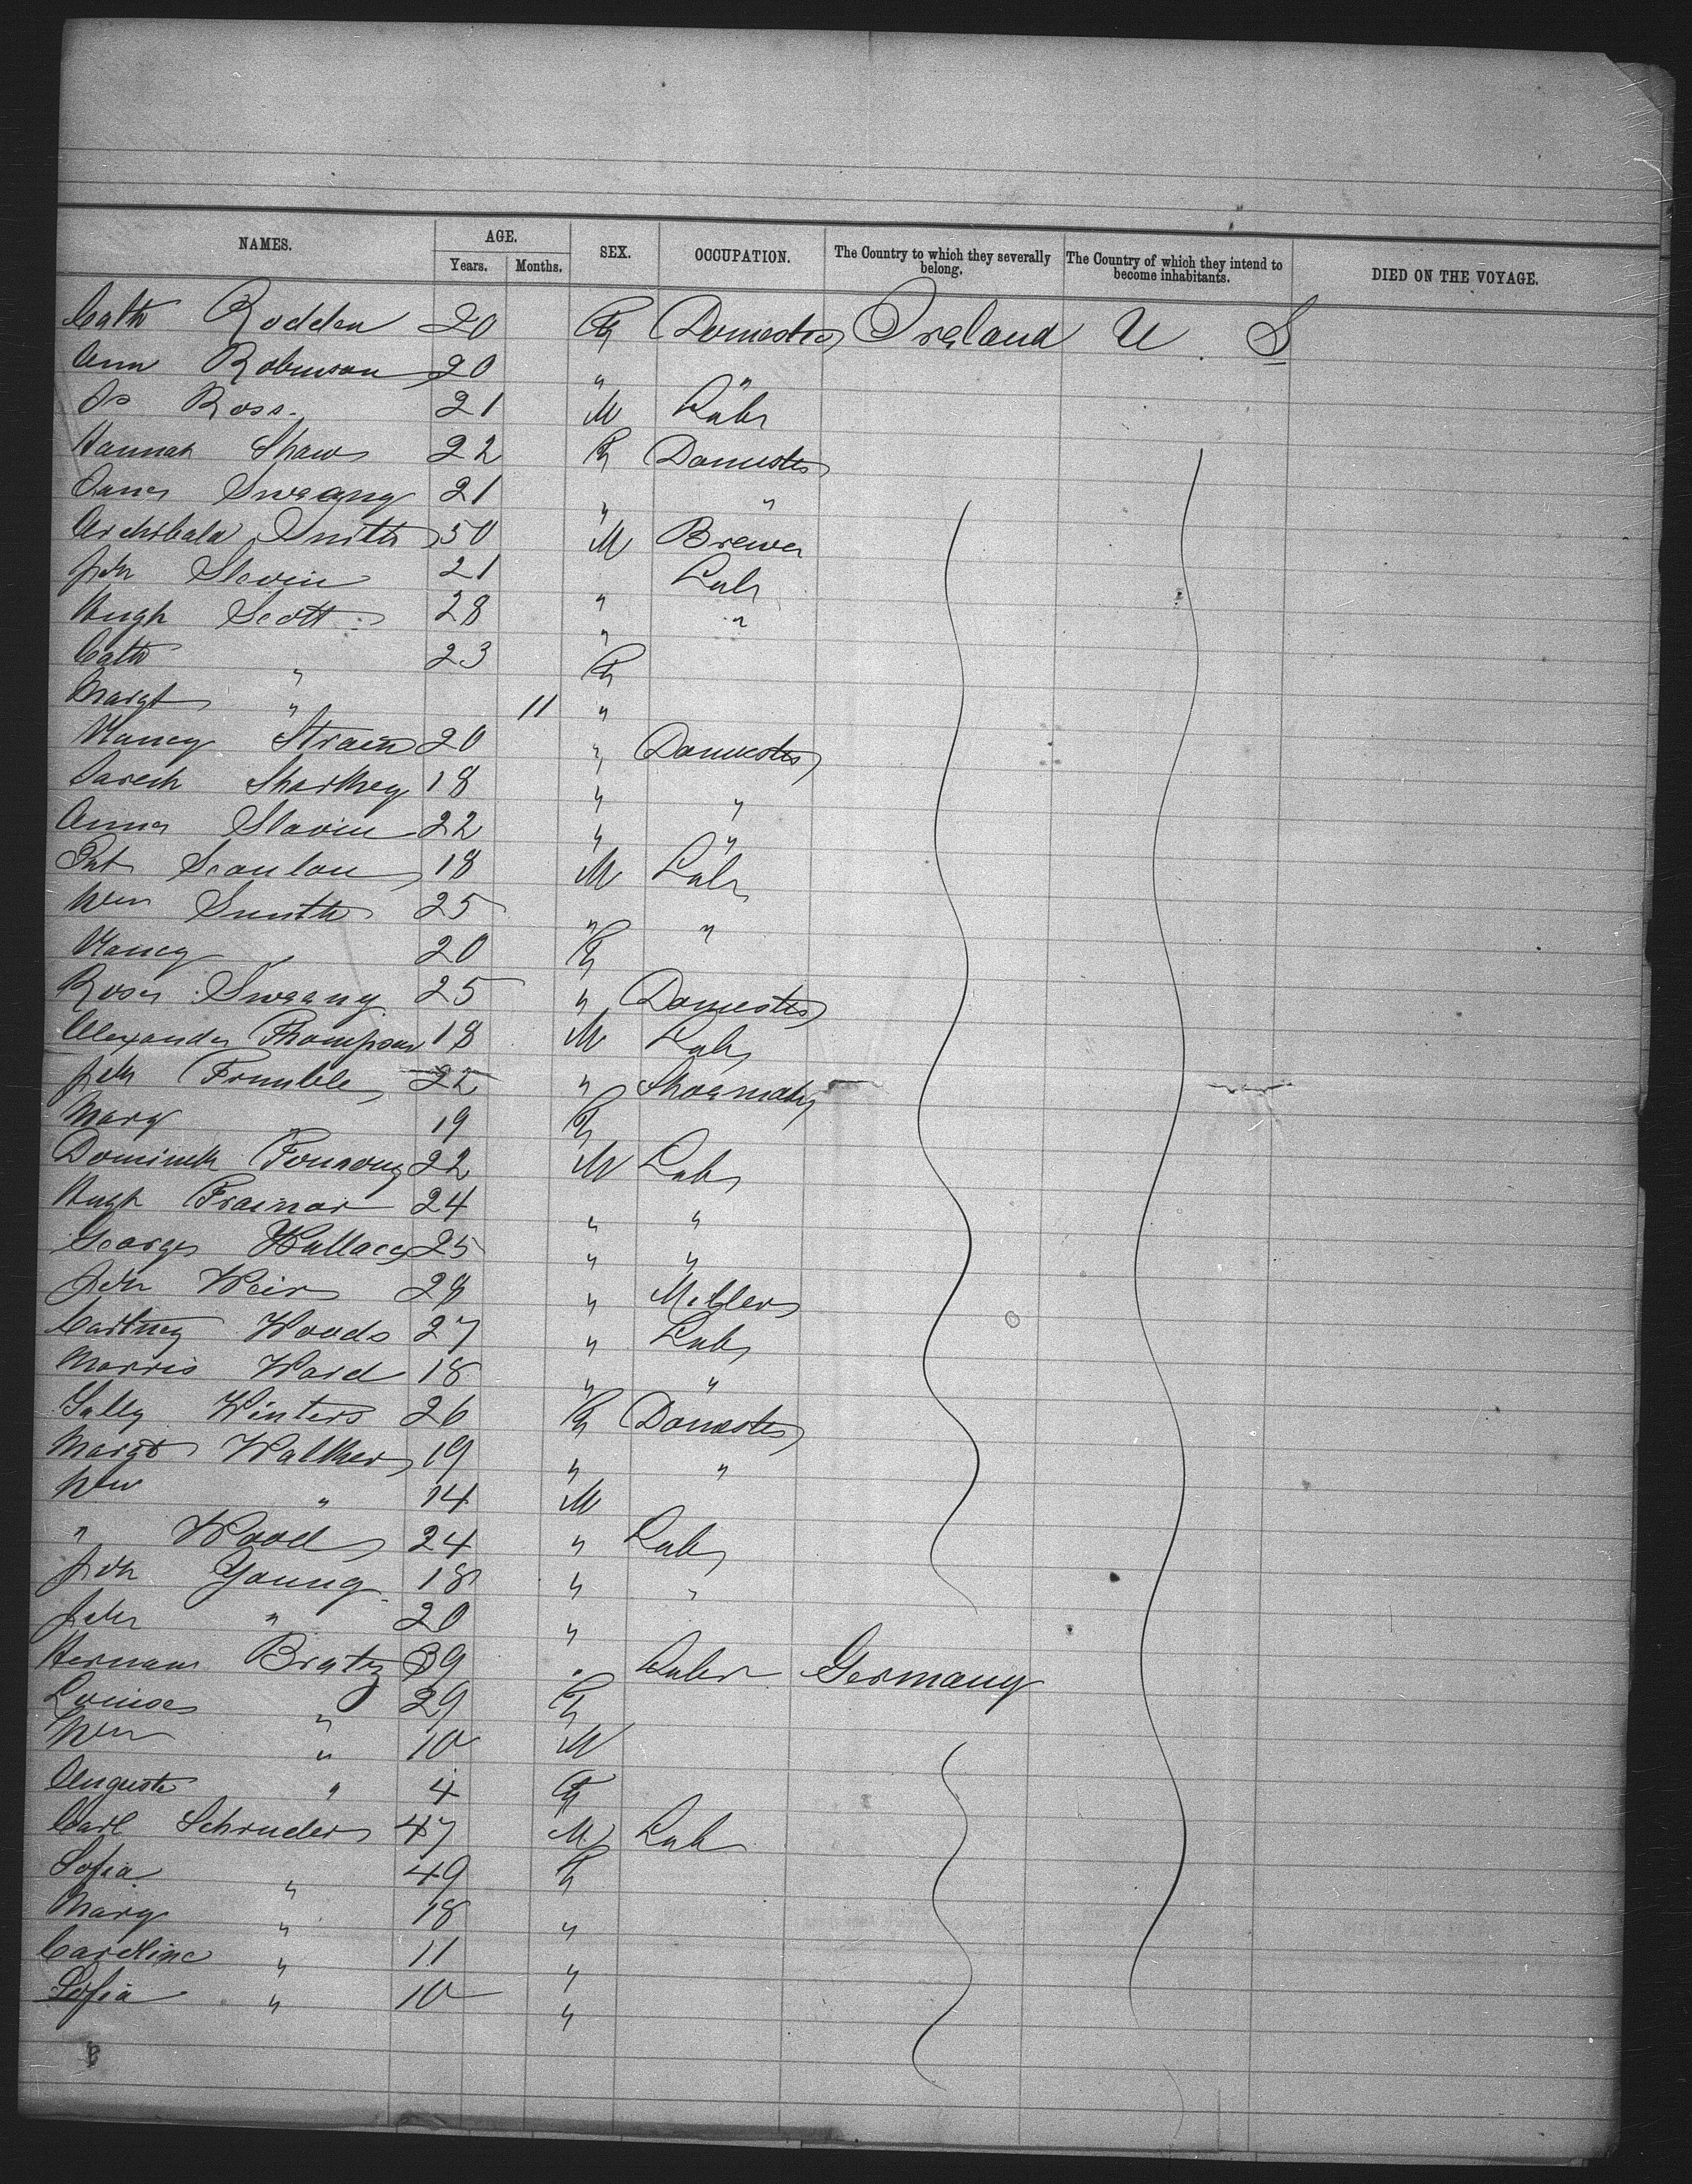 NAMES. AGE. Years. Months. SEX. OCCUPATION. The Country to which they severally belong. The Country of which they intend to become inhabitants. DIED ON THE VOYAGE.
Cath Rodden 20 F Domestic Ireland U. S
Ann Robinson 20 " "
Js Ross. 21 M Labr
Hannah Shaw 22 F Domestic
James Sweeny 21 " "
Archibald Smith 50 M Brewer
John Slavin 21 " Labr
Hugh Scott 28 " "
Cath " 23 F
Margt " 11 "
Nancy Strain 20 " Domestic
Sarah Sharkey 18 " "
Annie Slavin 22 " "
Pat Scanlan 18 M Labr
Wm Smith 25 " "
Nancy " 20 F
Rose Sweeny 25 " Domestic
Alexander Thompson 18 M Labr
John Trimble 22 " Shoemaker
Mary " 19 F
Dominick Tonrony 22 M Labr
Hugh Trainor 24 " "
George Wallace 25 " "
John Weir 28 " Miller
Cartney Woods 27 " Labr
Morris Ward 18 " "
Sally Winters 26 F Domestic
Margt Walker 19 " "
Wm " 14 M
" Wood 24 " Labr
John Young 18 " "
John " 20 "
Herman Bratz 39 " Labor Germany
Louise " 29 F
Wm " 10 M
Auguste " 4 F
Carl Schruder 47 M Lab
Sofia " 49 F
Mary " 18 "
Caroline " 11 "
Sofia " 10 "